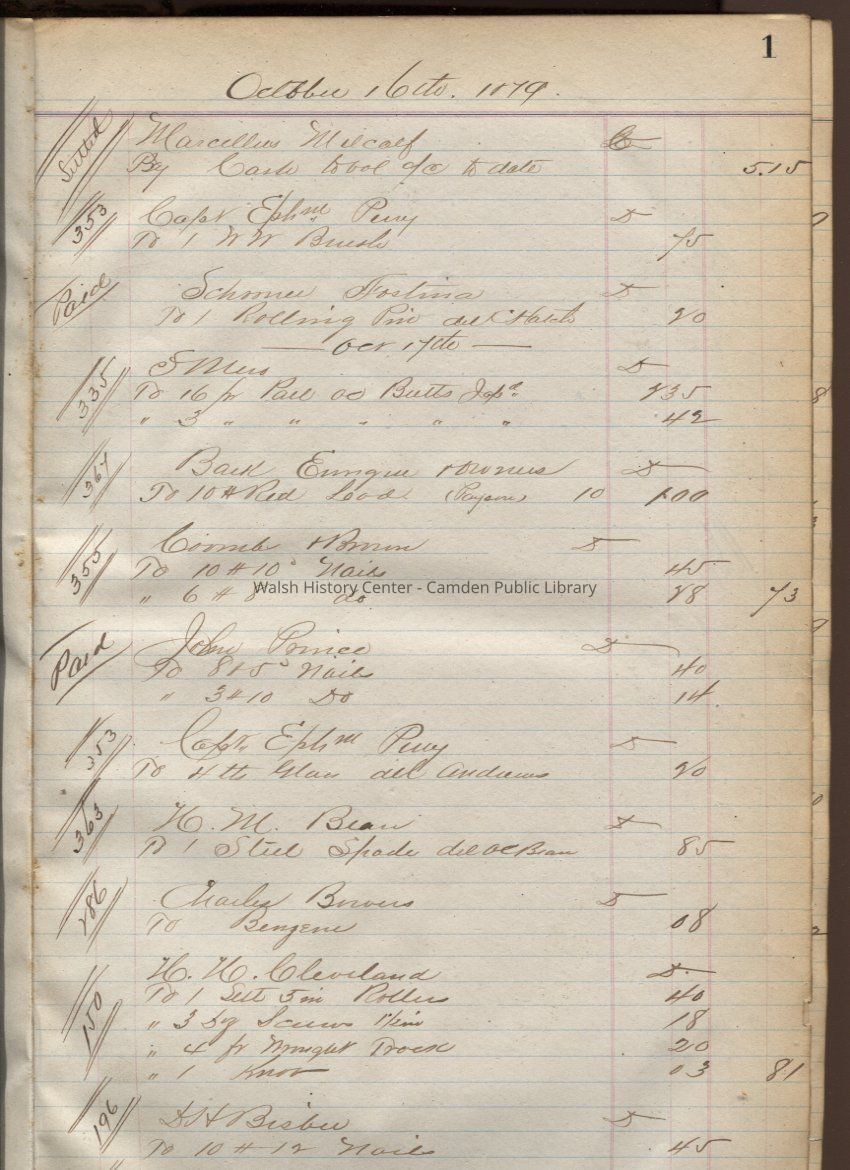 1
October 16th. 1879.
Settled
Marcellus Metcalf Cr
By Cash to bal a/c to date 5.15
353
Capt Ephm Perry D
To 1 W W Brush 75
Paid
Schooner D
To 1 Rolling Pin del Hatch 20
Oct 17th
335
D
To 16 pr Butts Jap'd 2 35
" 3 " " " " " 42
367
Bark & Owners D
To 10 # Red Lead (Payson) 10 1.00
355
Coombs & Brown D
To 10 # 10d Nails 45
" 6 # 8 do 28 73
Walsh History Center - Camden Public Library
Paid
John Prince D
To 8 # 5d Nails 40
" 3 # 10 Do 14
353
Capt. Ephm Perry D
To 4 Glass del Andrews 20
363
H. M. Bean D
To 1 Steel Spade del Bean 85
286
Charles Bowers D
To Benzene 08
150
H. H. Cleveland D
To 1 Sett 5 in Rollers 40
" 3 Doz Screws 1 1/2 in 18
" 4 pr Wrought 20
" 1 Knob 03 81
196
D H Bisbee D
To 10 # 12 Nails 45